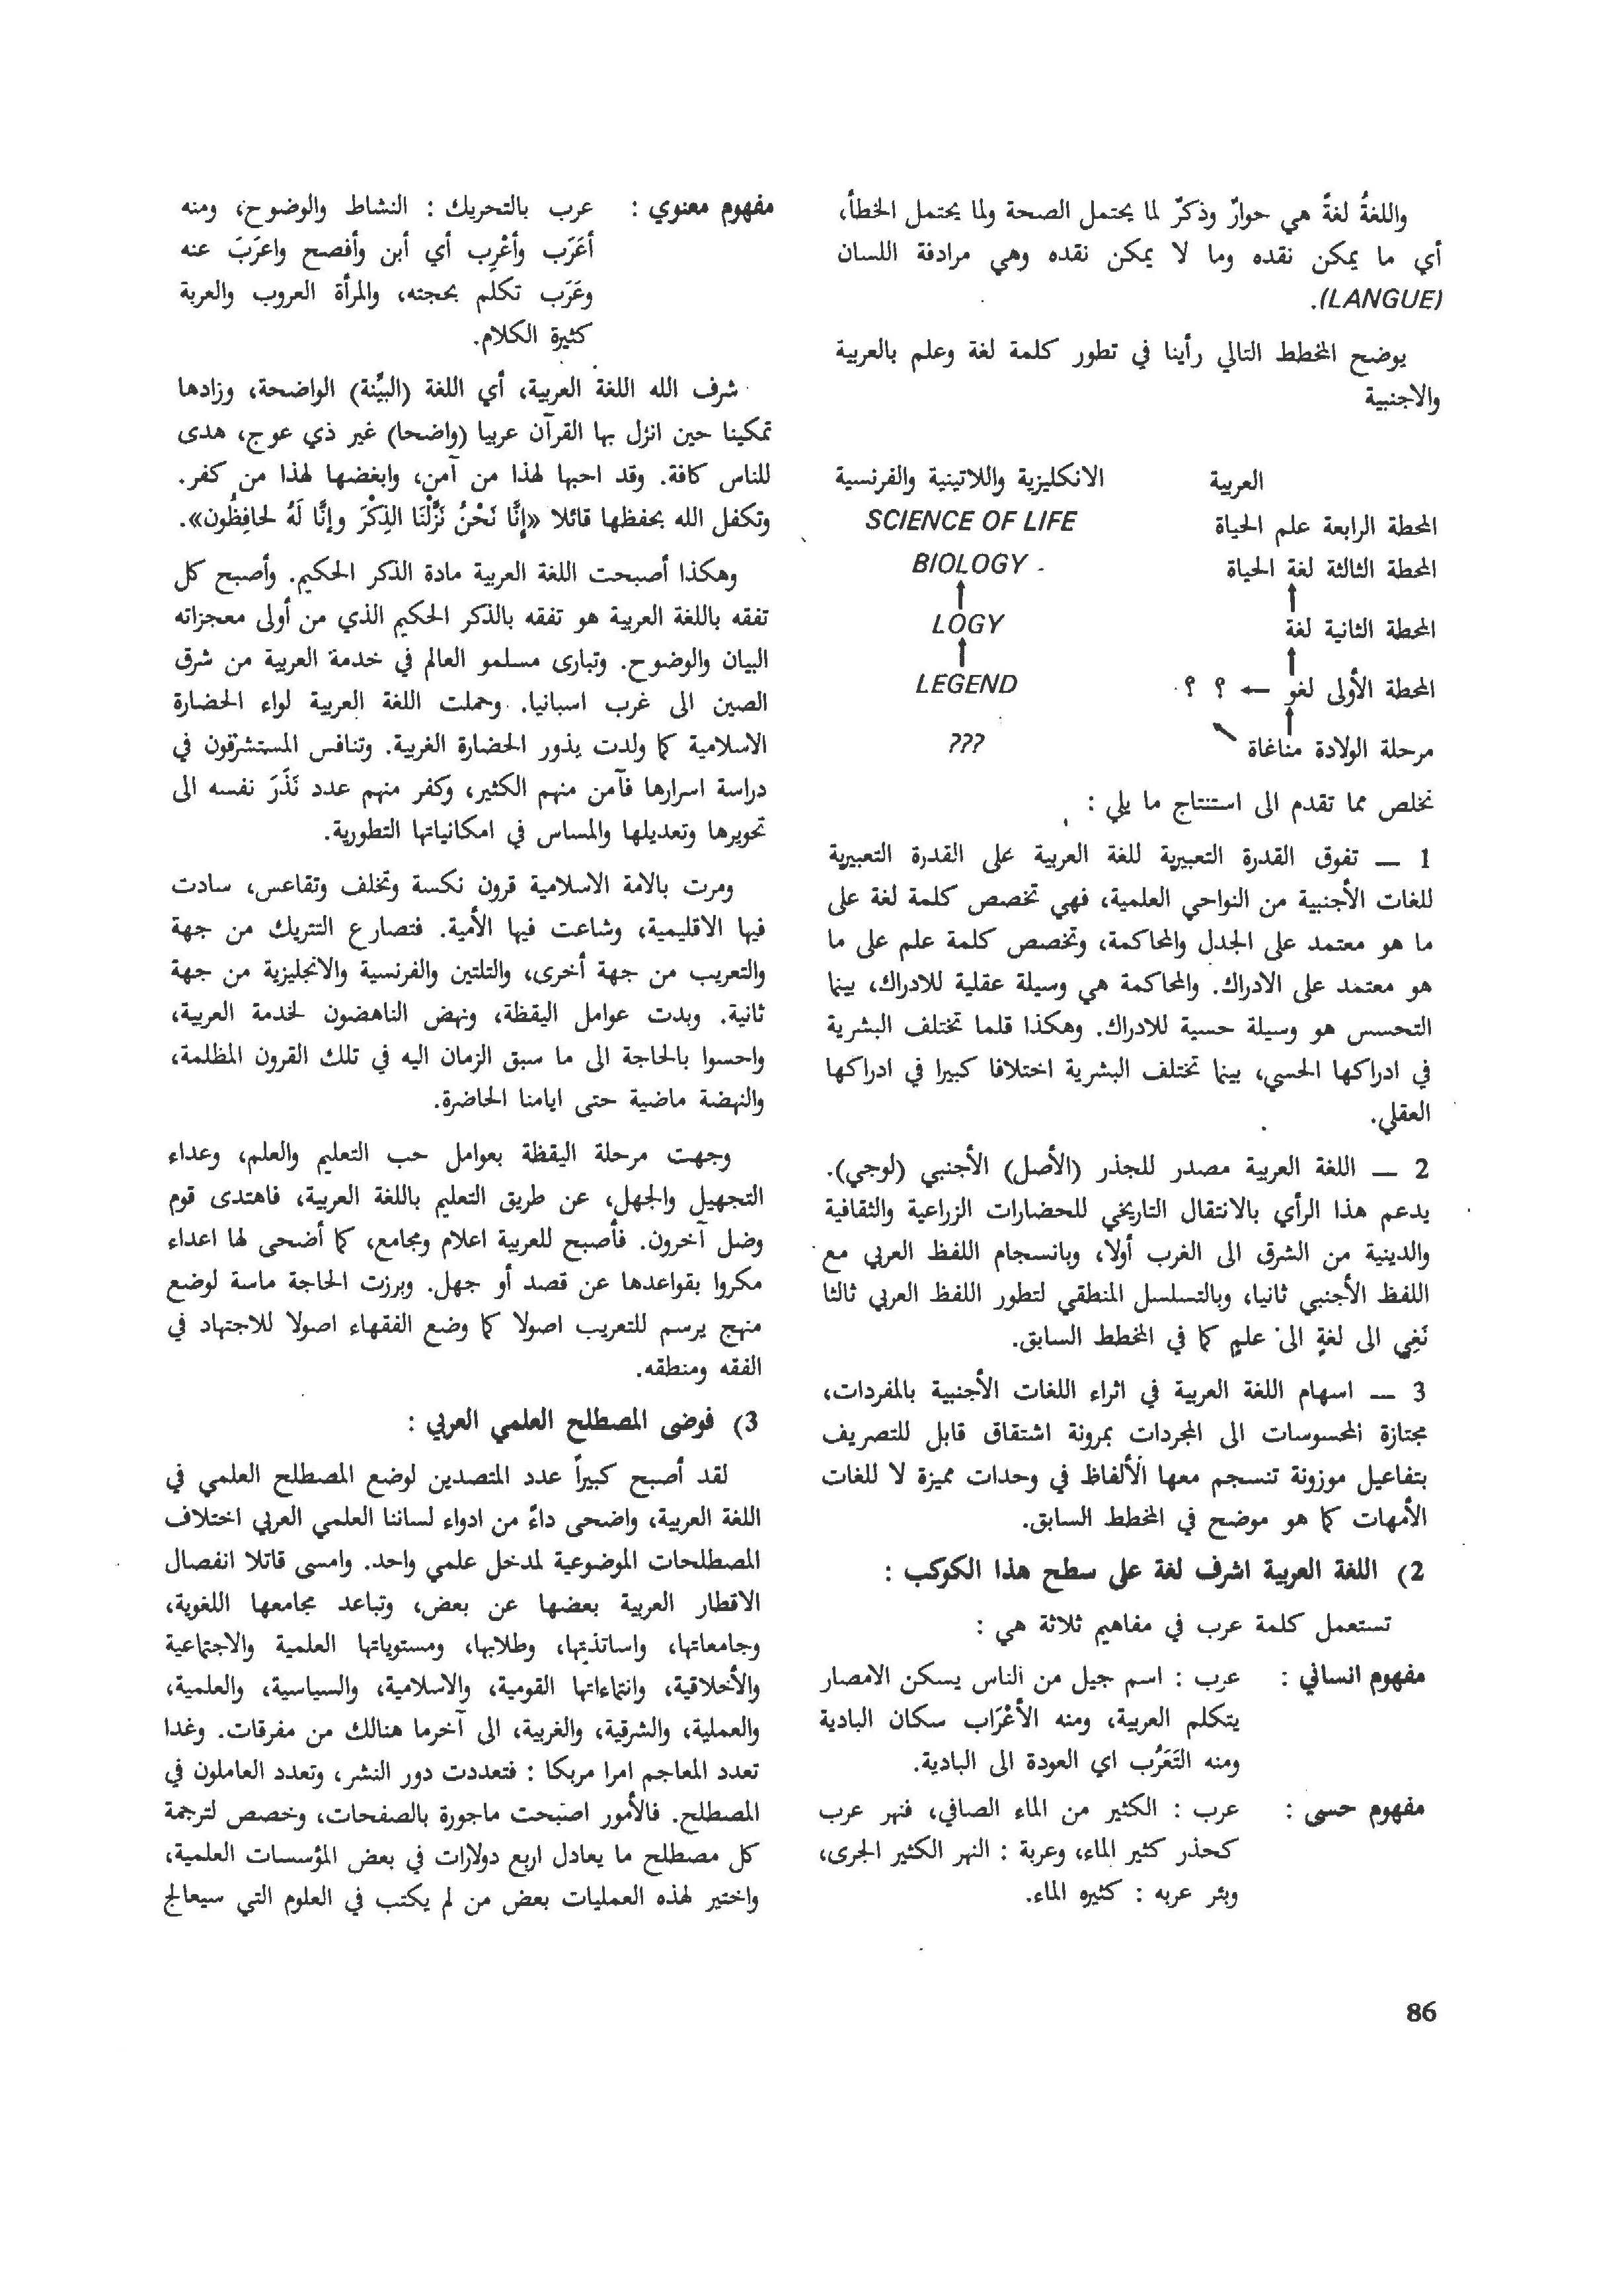 واللغةُ لغةً هي حوارٌ وذكرٌ لما يحتمل الصحة ولما يحتمل الخطأ،
أي ما يمكن نقده وما لا يمكن نقده وهي مرادفة اللسان
(LANGUE).
يوضح المخطط التالي رأينا في تطور كلمة لغة وعلم بالعربية
والاجنبية
العربية الانكليزية واللاتينية والفرنسية
المحطة الرابعة علم الحياة SCIENCE OF LIFE
المحطة الثالثة لغة الحياة BIOLOGY
↑ ↑
المحطة الثانية لغة LOGY
↑ ↑
المحطة الأولى لغو ← ؟ ؟ LEGEND
↑
مرحلة الولادة مناغاة ???
نخلص مما تقدم الى استنتاج ما يلي :
1 — تفوق القدرة التعبيرية للغة العربية على القدرة التعبيرية
للغات الأجنبية من النواحي العلمية، فهي تخصص كلمة لغة على
ما هو معتمد على الجدل والمحاكمة، وتخصص كلمة علم على ما
هو معتمد على الادراك. والمحاكمة هي وسيلة عقلية للادراك، بينما
التحسس هو وسيلة حسية للادراك. وهكذا قلما تختلف البشرية
في ادراكها الحسي، بينما تختلف البشرية اختلافا كبيرا في ادراكها
العقلي.
2 — اللغة العربية مصدر للجذر (الأصل) الأجنبي (لوجي).
يدعم هذا الرأي بالانتقال التاريخي للحضارات الزراعية والثقافية
والدينية من الشرق الى الغرب أولا، وبانسجام اللفظ العربي مع
اللفظ الأجنبي ثانيا، وبالتسلسل المنطقي لتطور اللفظ العربي ثالثا
نَغِي الى لغةٍ الى علمٍ كما في المخطط السابق.
3 — اسهام اللغة العربية في اثراء اللغات الأجنبية بالمفردات،
مجتازة المحسوسات الى المجردات بمرونة اشتقاق قابل للتصريف
بتفاعيل موزونة تنسجم معها الألفاظ في وحدات مميزة لا للغات
الأمهات كما هو موضح في المخطط السابق.
2) اللغة العربية اشرف لغة على سطح هذا الكوكب :
تستعمل كلمة عرب في مفاهيم ثلاثة هي :
مفهوم انساني : عرب : اسم جيل من الناس يسكن الامصار
يتكلم العربية، ومنه الأَعْرَاب سكان البادية
ومنه التَعَرُب اي العودة الى البادية.
مفهوم حسي : عرب : الكثير من الماء الصافي، فنهر عرب
كحذر كثير الماء، وعربة : النهر الكثير الجرى،
وبئر عربه : كثيره الماء.
مفهوم معنوي : عرب بالتحريك : النشاط والوضوح، ومنه
أعَرَب وأعْرِب أي أبن وأفصح واعرَبَ عنه
وعَرَب تكلم بحجته، والمرأة العروب والعربة
كثيرة الكلام.
شرف الله اللغة العربية، أي اللغة (البيِّنة) الواضحة، وزادها
تمكينا حين انزل بها القرآن عربيا (واضحا) غير ذي عوج، هدى
للناس كافة. وقد احبها لهذا من آمن، وابغضها لهذا من كفر.
وتكفل الله بحفظها قائلا «إنَّا نَحْنُ نَزَّلْنَا الذِكْرَ وإنَّا لَهُ لحَافِظُون».
وهكذا أصبحت اللغة العربية مادة الذكر الحكيم. وأصبح كل
تفقه باللغة العربية هو تفقه بالذكر الحكيم الذي من أولى معجزاته
البيان والوضوح. وتبارى مسلمو العالم في خدمة العربية من شرق
الصين الى غرب اسبانيا. وحملت اللغة العربية لواء الحضارة
الاسلامية كما ولدت بذور الحضارة الغربية. وتنافس المستشرقون في
دراسة اسرارها فآمن منهم الكثير، وكفر منهم عدد نَذَرَ نفسه الى
تحويرها وتعديلها والمساس في امكانياتها التطورية.
ومرت بالامة الاسلامية قرون نكسة وتخلف وتقاعس، سادت
فيها الاقليمية، وشاعت فيها الأمية. فتصارع التتريك من جهة
والتعريب من جهة أخرى، والتلتين والفرنسية والانجليزية من جهة
ثانية. وبدت عوامل اليقظة، ونهض الناهضون لخدمة العربية،
واحسوا بالحاجة الى ما سبق الزمان اليه في تلك القرون المظلمة،
والنهضة ماضية حتى ايامنا الحاضرة.
وجهت مرحلة اليقظة بعوامل حب التعليم والعلم، وعداء
التجهيل والجهل، عن طريق التعليم باللغة العربية، فاهتدى قوم
وضل آخرون. فأصبح للعربية اعلام ومجامع، كما أضحى لها اعداء
مكروا بقواعدها عن قصد أو جهل. وبرزت الحاجة ماسة لوضع
منهج يرسم للتعريب اصولا كما وضع الفقهاء اصولا للاجتهاد في
الفقه ومنطقه.
3) فوضى المصطلح العلمي العربي :
لقد أصبح كبيراً عدد المتصدين لوضع المصطلح العلمي في
اللغة العربية، واضحى داءً من ادواء لساننا العلمي العربي اختلاف
المصطلحات الموضوعية لمدخل علمي واحد. وامسى قاتلا انفصال
الاقطار العربية بعضها عن بعض، وتباعد مجامعها اللغوية،
وجامعاتها، واساتذتها، وطلابها، ومستوياتها العلمية والاجتماعية
والأخلاقية، وانتماءاتها القومية، والاسلامية، والسياسية، والعلمية،
والعملية، والشرقية، والغربية، الى آخرما هنالك من مفرقات. وغدا
تعدد المعاجم امرا مربكا : فتعددت دور النشر، وتعدد العاملون في
المصطلح. فالأمور اصبحت ماجورة بالصفحات، وخصص لترجمة
كل مصطلح ما يعادل اربع دولارات في بعض المؤسسات العلمية،
واختير لهذه العمليات بعض من لم يكتب في العلوم التي سيعالج
86